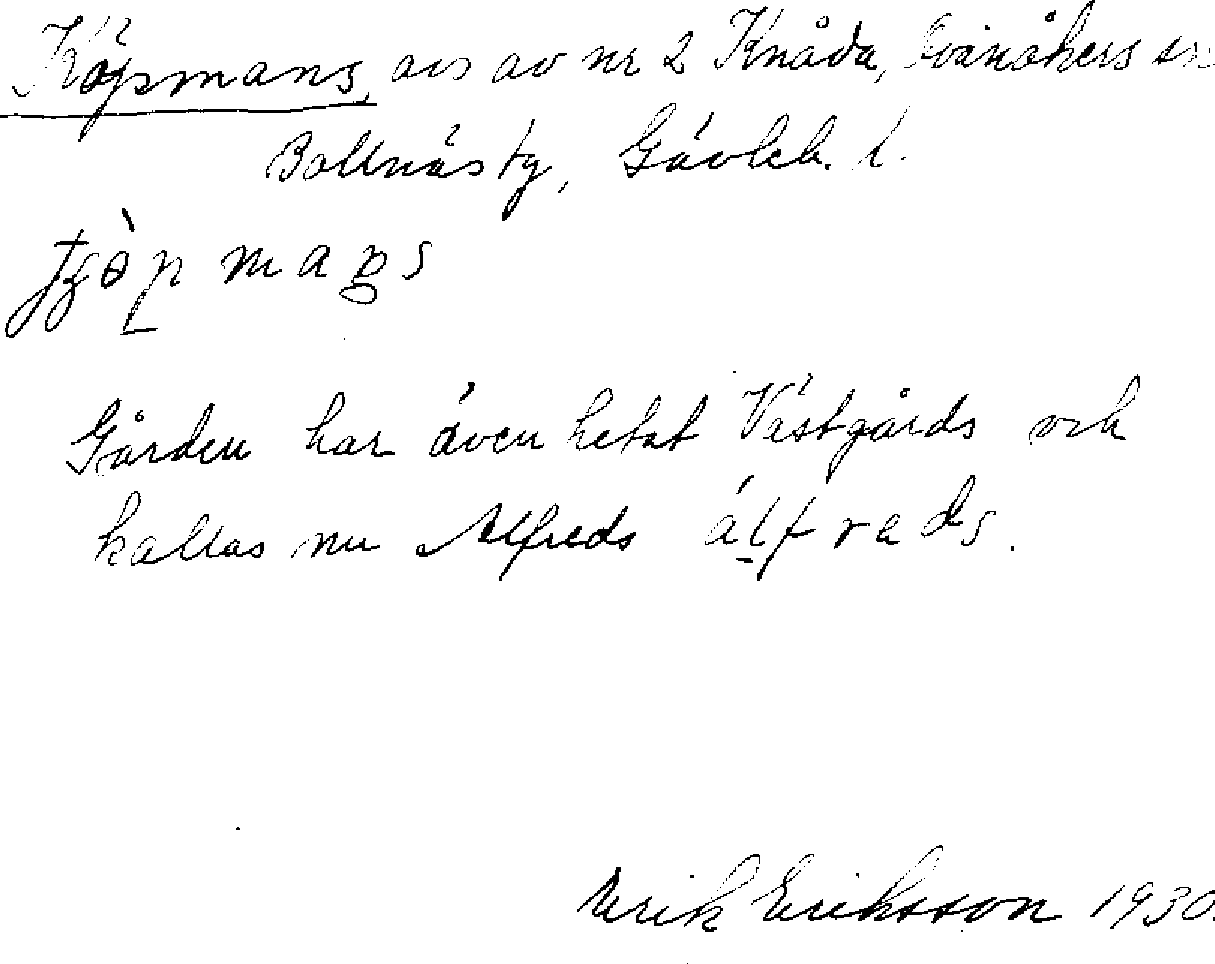 Köpmans, avs av nr 2 Knåda, Svanåkers sn
Bollnäs tg, Gävleb. l.
Gården har även hetat Västgårds och
kallas nu Alfreds álfreds.
Erik Eriksson 1930.